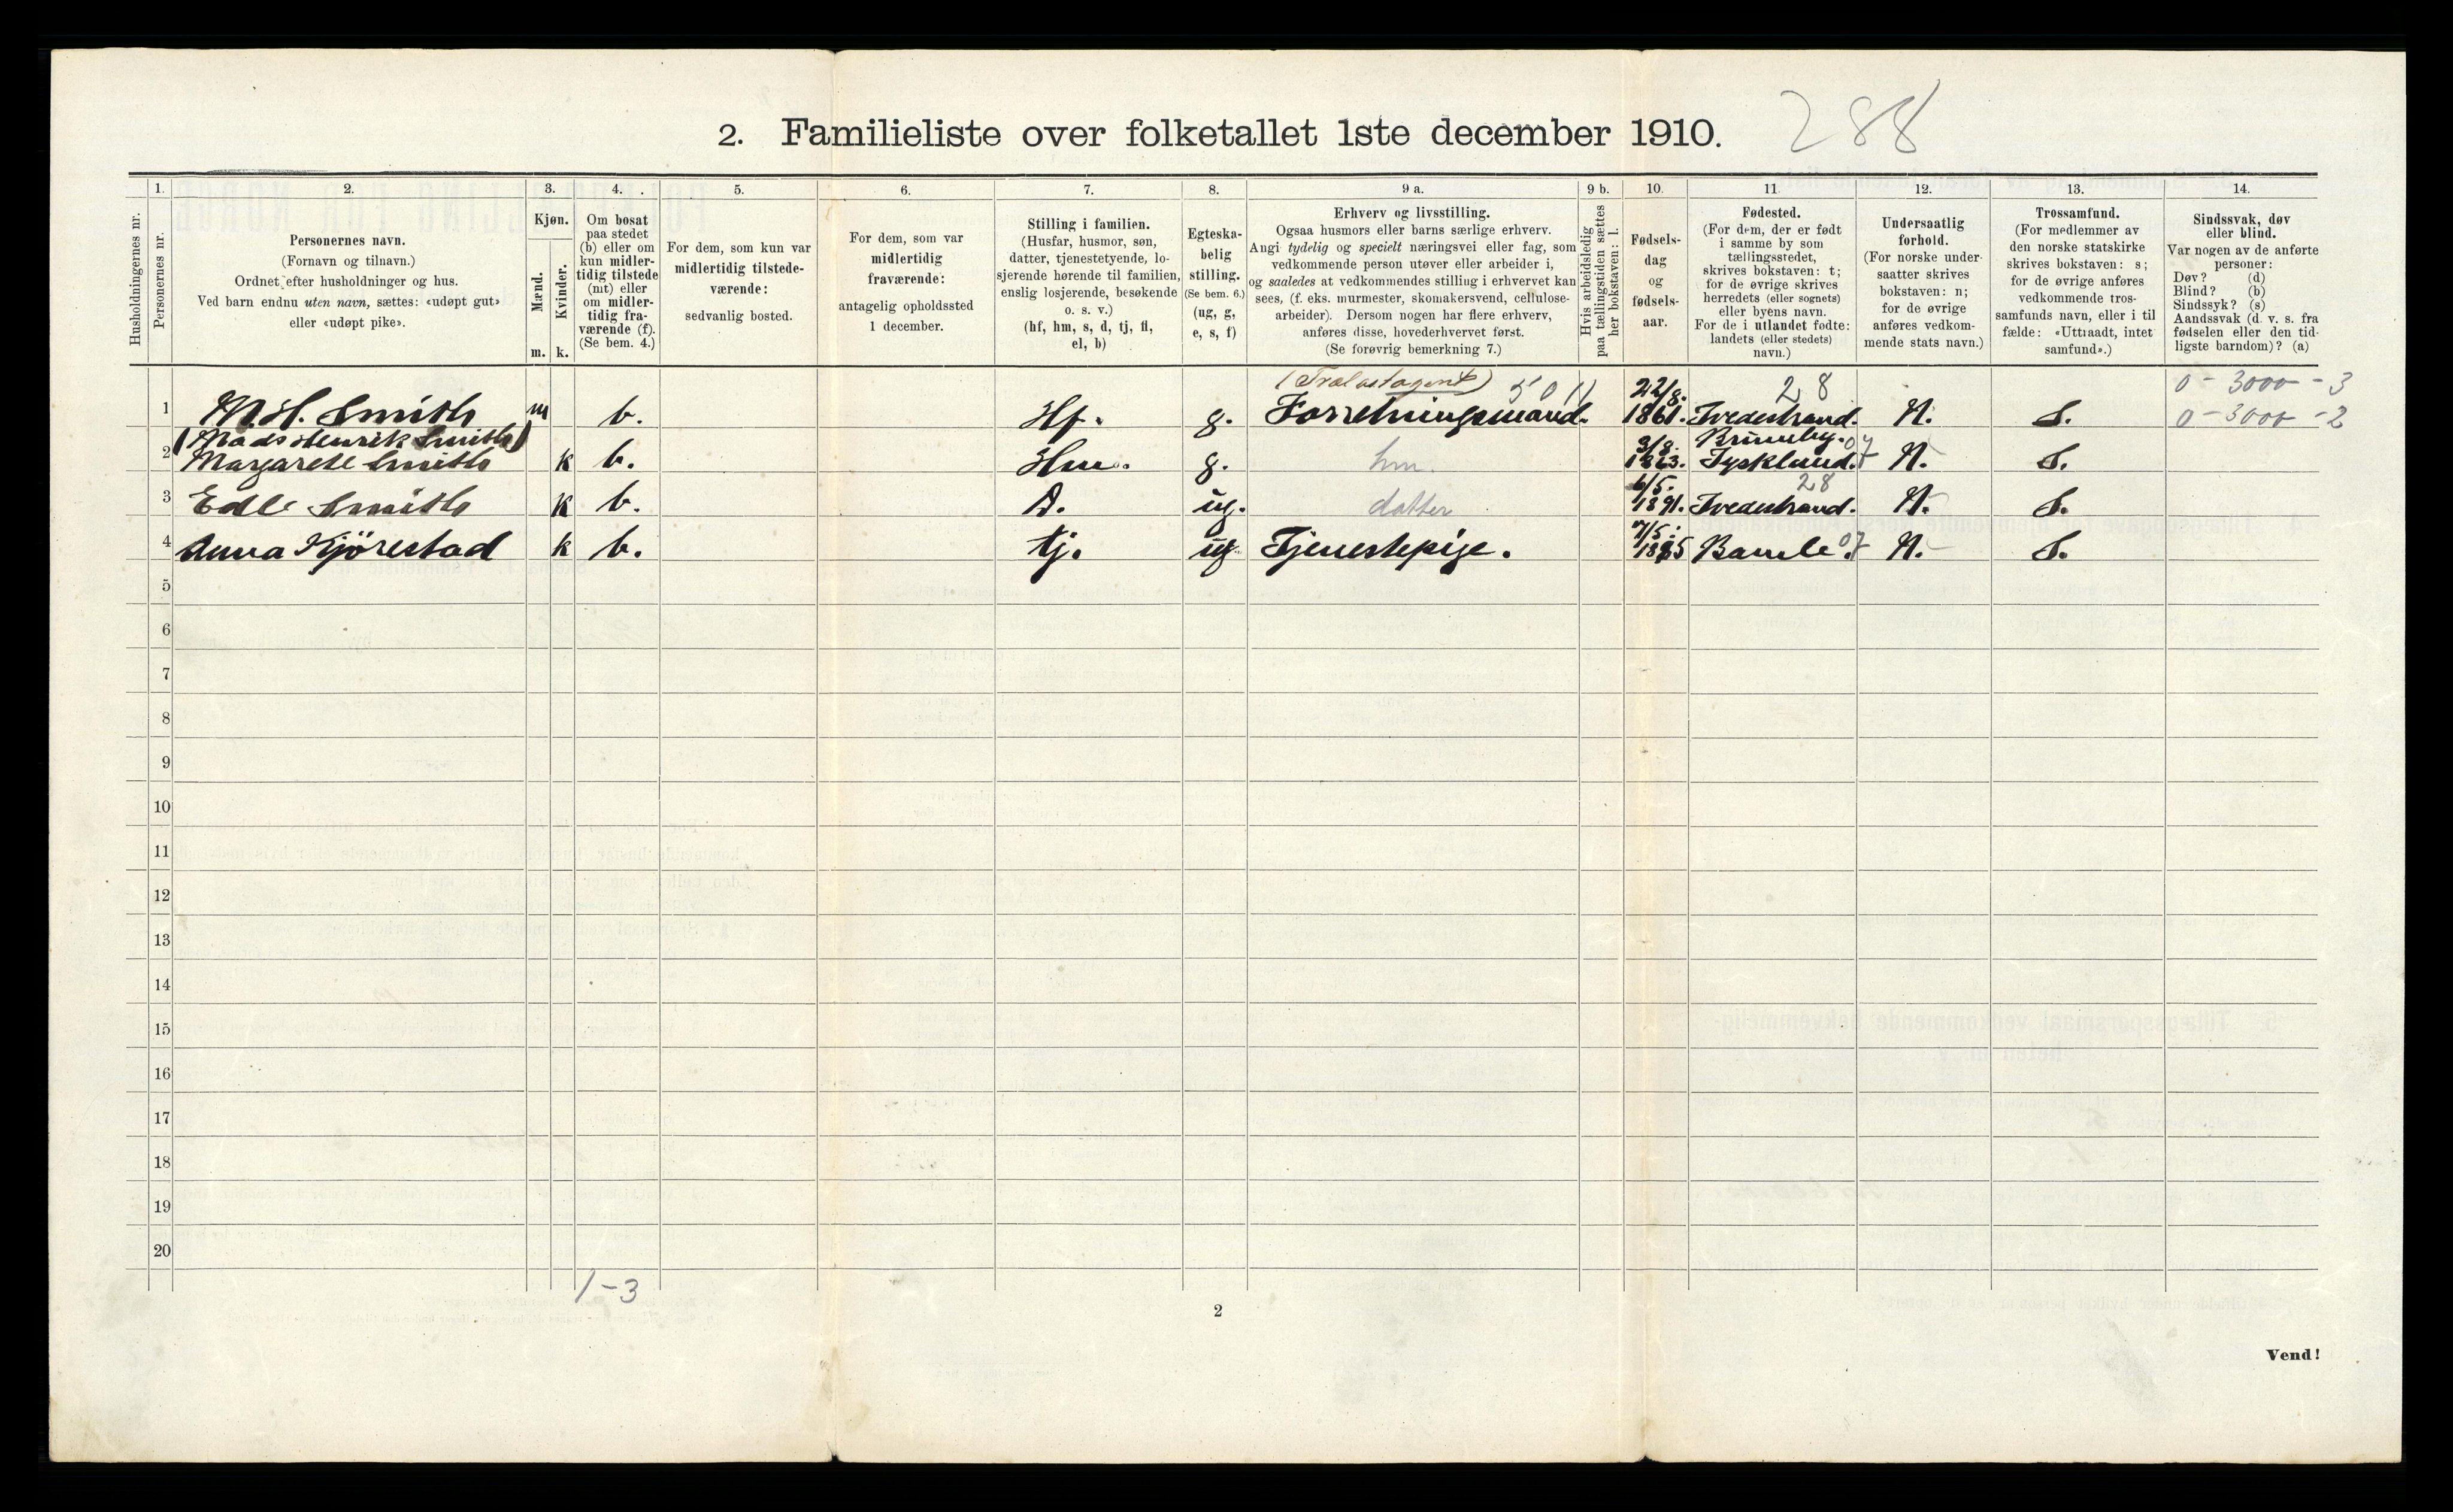 2. Familieliste over folketallet 1ste december 1910.
288
1. 2. 3. 4. 5. 6. 7. 8. 9 a. 9 b. 10. 11. 12. 13. 14.
Husholdningernes nr.
Personernes nr.
Personernes navn.
(Fornavn og tilnavn.)
Ordnet efter husholdninger og hus.
Ved barn endnu uten navn, sættes: «udøpt gut»
eller «udøpt pike».
Kjøn.
Mænd.
Kvinder.
m. k.
Om bosat
paa stedet
(b) eller om
kun midler-
tidig tilstede
(mt) eller
om midler-
tidig fra-
værende (f).
(Se bem. 4.)
For dem, som kun var
midlertidig tilstede-
værende:
sedvanlig bosted.
For dem, som var
midlertidig
fraværende:
antagelig opholdssted
1 december.
Stilling i familien.
(Husfar, husmor, søn,
datter, tjenestetyende, lo-
sjerende hørende til familien,
enslig losjerende, besøkende
o. s. v.)
(hf, hm, s, d, tj, fl,
el, b)
Egteska-
belig
stilling.
(Se bem. 6.)
(ug, g,
e, s, f)
Erhverv og livsstilling.
Ogsaa husmors eller barns særlige erhverv.
Angi tydelig og specielt næringsvei eller fag, som
vedkommende person utøver eller arbeider i,
og saaledes at vedkommendes stilling i erhvervet kan
sees, (f. eks. murmester, skomakersvend, cellulose-
arbeider). Dersom nogen har flere erhverv,
anføres disse, hovederhvervet først.
(Se forøvrig bemerkning 7.)
Hvis arbeidsledig
paa tællingstiden sættes
her bokstaven: l.
Fødsels-
dag
og
fødsels-
aar.
Fødested.
(For dem, der er født
i samme by som
tællingsstedet,
skrives bokstaven: t;
for de øvrige skrives
herredets (eller sognets)
eller byens navn.
For de i utlandet fødte:
landets (eller stedets)
navn.)
Undersaatlig
forhold.
(For norske under-
saatter skrives
bokstaven: n;
for de øvrige
anføres vedkom-
mende stats navn.)
Trossamfund.
(For medlemmer av
den norske statskirke
skrives bokstaven: s;
for de øvrige anføres
vedkommende tros-
samfunds navn, eller i til-
fælde: «Uttraadt, intet
samfund».)
Sindssvak, døv
eller blind.
Var nogen av de anførte
personer:
Døv? (d)
Blind? (b)
Sindssyk? (s)
Aandssvak (d. v. s. fra
fødselen eller den tid-
ligste barndom)? (a)
(Trælastagent) 5011 22/8. 28 0 - 3000 - 3
1 M. H. Smith m b. Hf. g. Forretningsmand. 1861. Tvedestrand. N. S. 0 - 3000 - 2
(Mads Henrik Smith) 3/8. 07
2 Margarete Smith k b. Hm. g. hm. 1863. Tyskland. N. S.
6/5. 28
3 Edle Smith k b. D. ug. datter 1891. Tvedestrand. N. S.
4 Anna Kjörestad k b. tj. ug. Tjenestepige. Bamle. 07 N. S.
5
6
7
8
9
10
11
12
13
14
15
16
17
18
19
20
1-3
2
Vend!